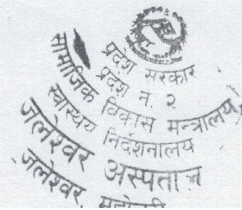 प्रदेश सरकार
प्रदेश नं. २
सामाजिक विकास मन्त्रालय
स्वास्थ्य निर्देशनालय
जलेश्वर अस्पताल
जलेश्वर महोत्तरी